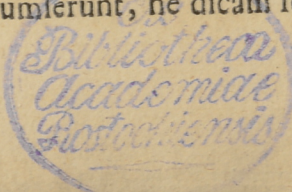 umserunt, ne dicam
Ex
Bibliotheca
Academiae
Rostochiensis